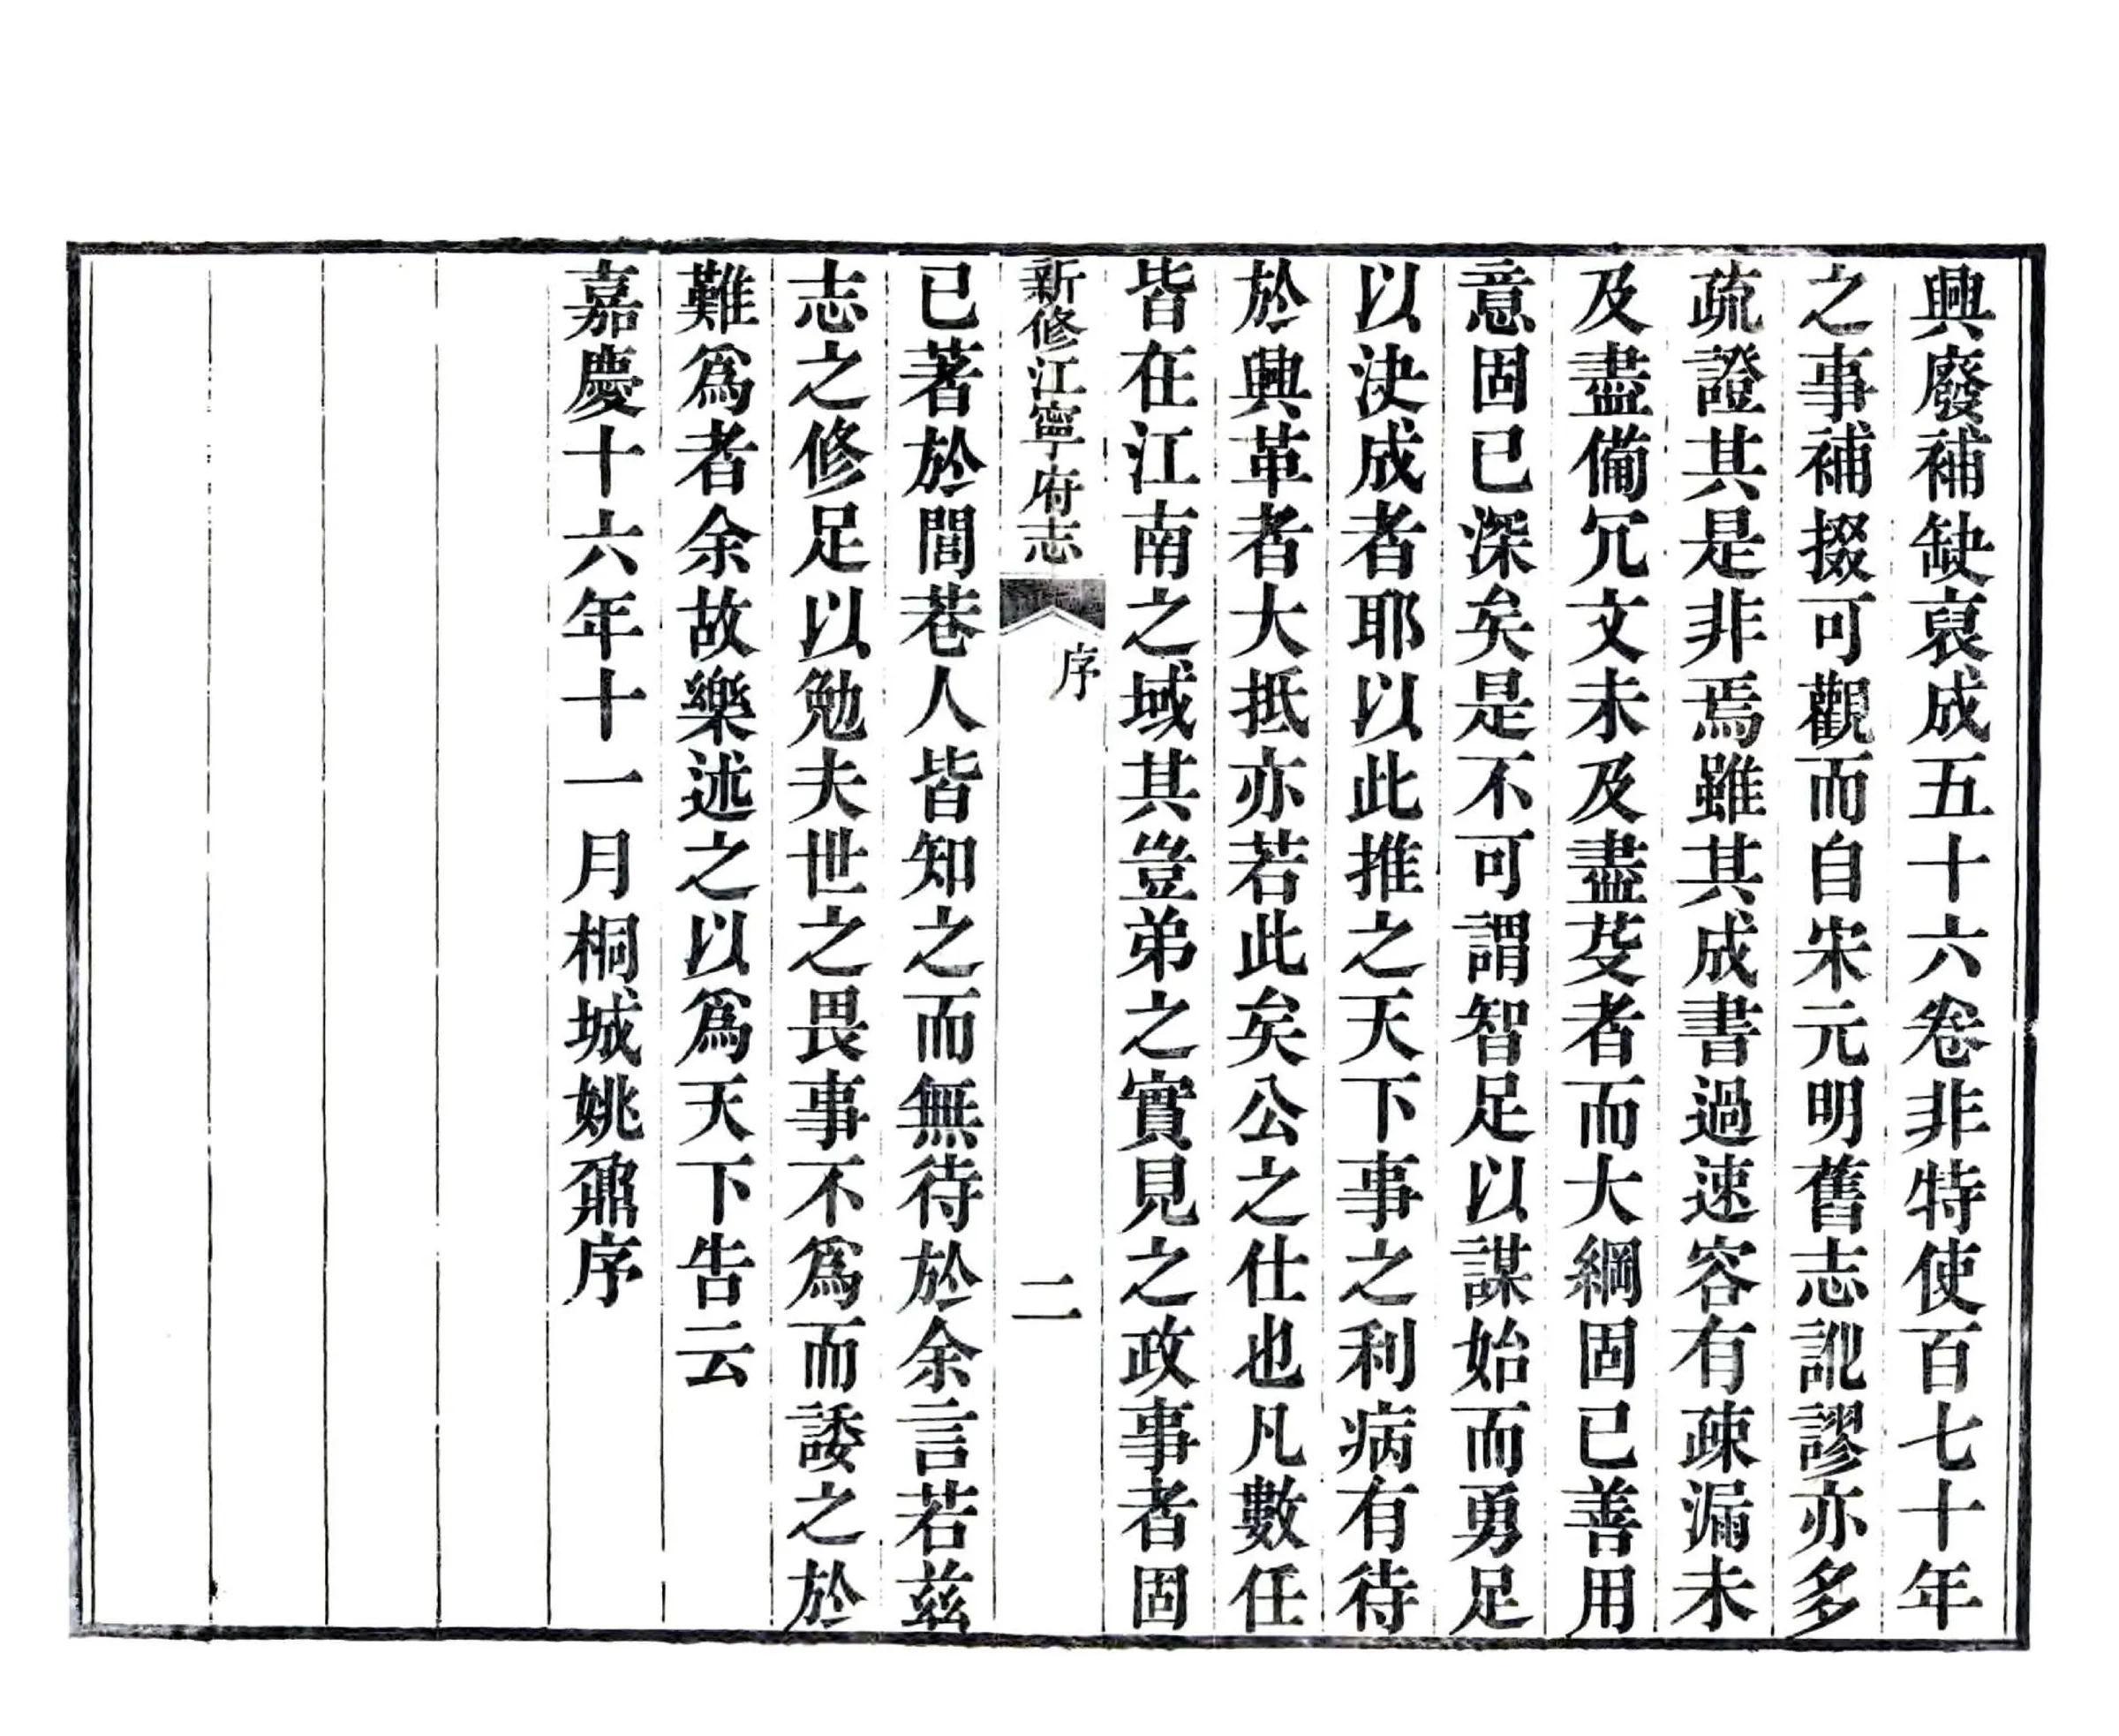 興廢補缺裒成五十六卷非特使百七十年
之事補掇可觀而自宋元明舊志訛謬亦多
疏證其是非焉雖其成書過速容有疎漏未
及盡備冗文未及盡芟者而大綱固已善用
意固已深矣是不可謂智足以謀始而勇足
以決成者耶以此推之天下事之利病有待
於興革者大抵亦若此矣公之仕也凡數任
皆在江南之域其豈弟之實見之政事者固
新修江寧府志
序
二
已著於閭巷人皆知之而無待於余言若兹
志之修足以勉夫世之畏事不爲而諉之於
難爲者余故樂述之以爲天下告云
嘉慶十六年十一月桐城姚鼐序